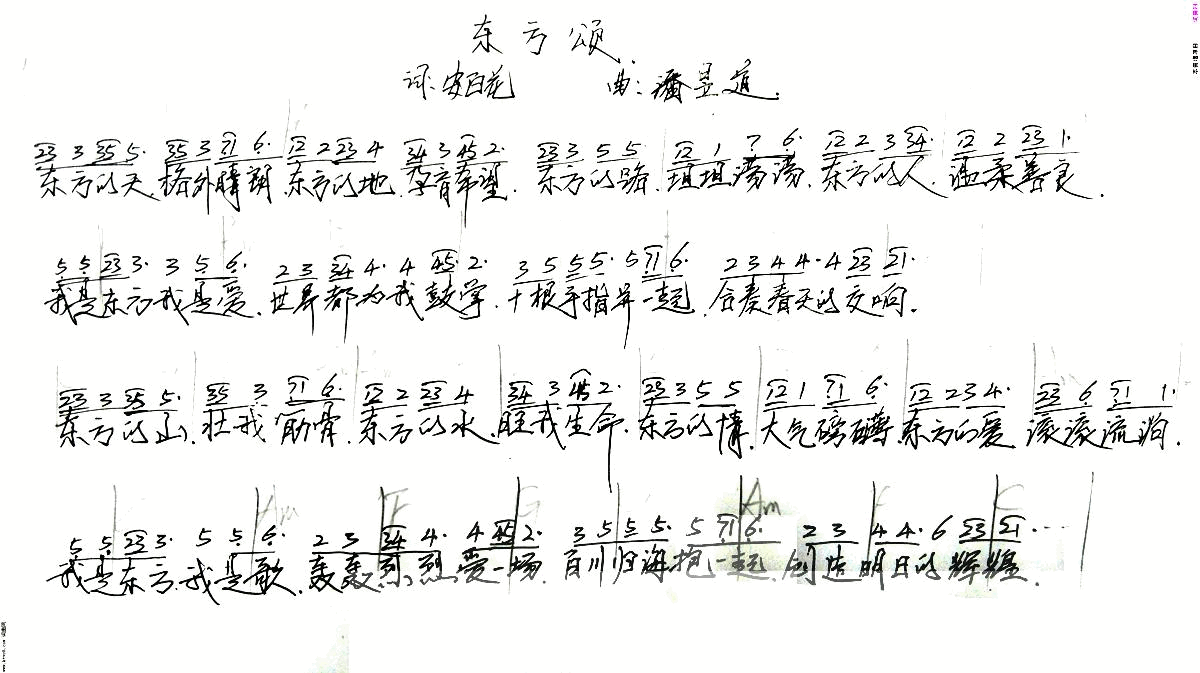 东方颂
词:安百花 曲:潘昱道.
23 3 35 5. 35 3 71 6. 12 2 23 4 34 3 45 2. 23 3 5 5 12 1 7 6. 12 2 3 34. 12 2 23 1.
东方的天,格外晴朗.东方的地.孕育希望.东方的路,坦坦荡荡,东方的人,温柔善良.
5 5 23 3. 3 5 6. 2 3 34 4. 4 45 2. 3 5 5 5. 5 71 6. 2 3 4 4. 4 23 21.
我是东方我是爱.世界都为我鼓掌.十根手指牵一起.合奏春天的交响.
23 3 35 5. 35 3 71 6. 12 2 23 4 34 3 45 2. 23 3 5 5 12 1 71 6. 12 23 4. 23 6 71 1.
东方的山,壮我筋骨.东方的水,旺我生命.东方的情,大气磅礴,东方的爱,滚滚流淌.
Am F G Am F C
5 5 23 3. 5 5 6. 2 3 34 4. 4 45 2. 3 5 5 5. 5 71 6. 2 3 4 4. 6 23 21. ...
我是东方,我是歌,轰轰烈烈爱一场.百川归海抱一起,创造明日的辉煌.